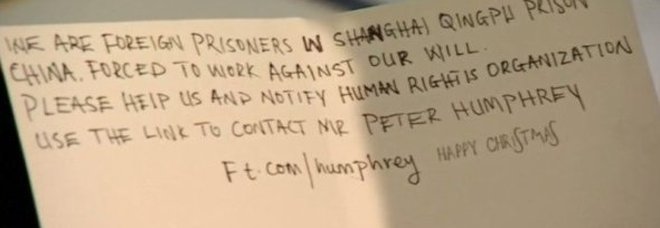 WE ARE FOREIGN PRISONERS IN SHANGHAI QINGPU PRISON
CHINA. FORCED TO WORK AGAINST OUR WILL.
PLEASE HELP US AND NOTIFY HUMAN RIGHTS ORGANIZATION
USE THE LINK TO CONTACT MR PETER HUMPHREY
Ft.com/humphrey HAPPY CHRISTMAS